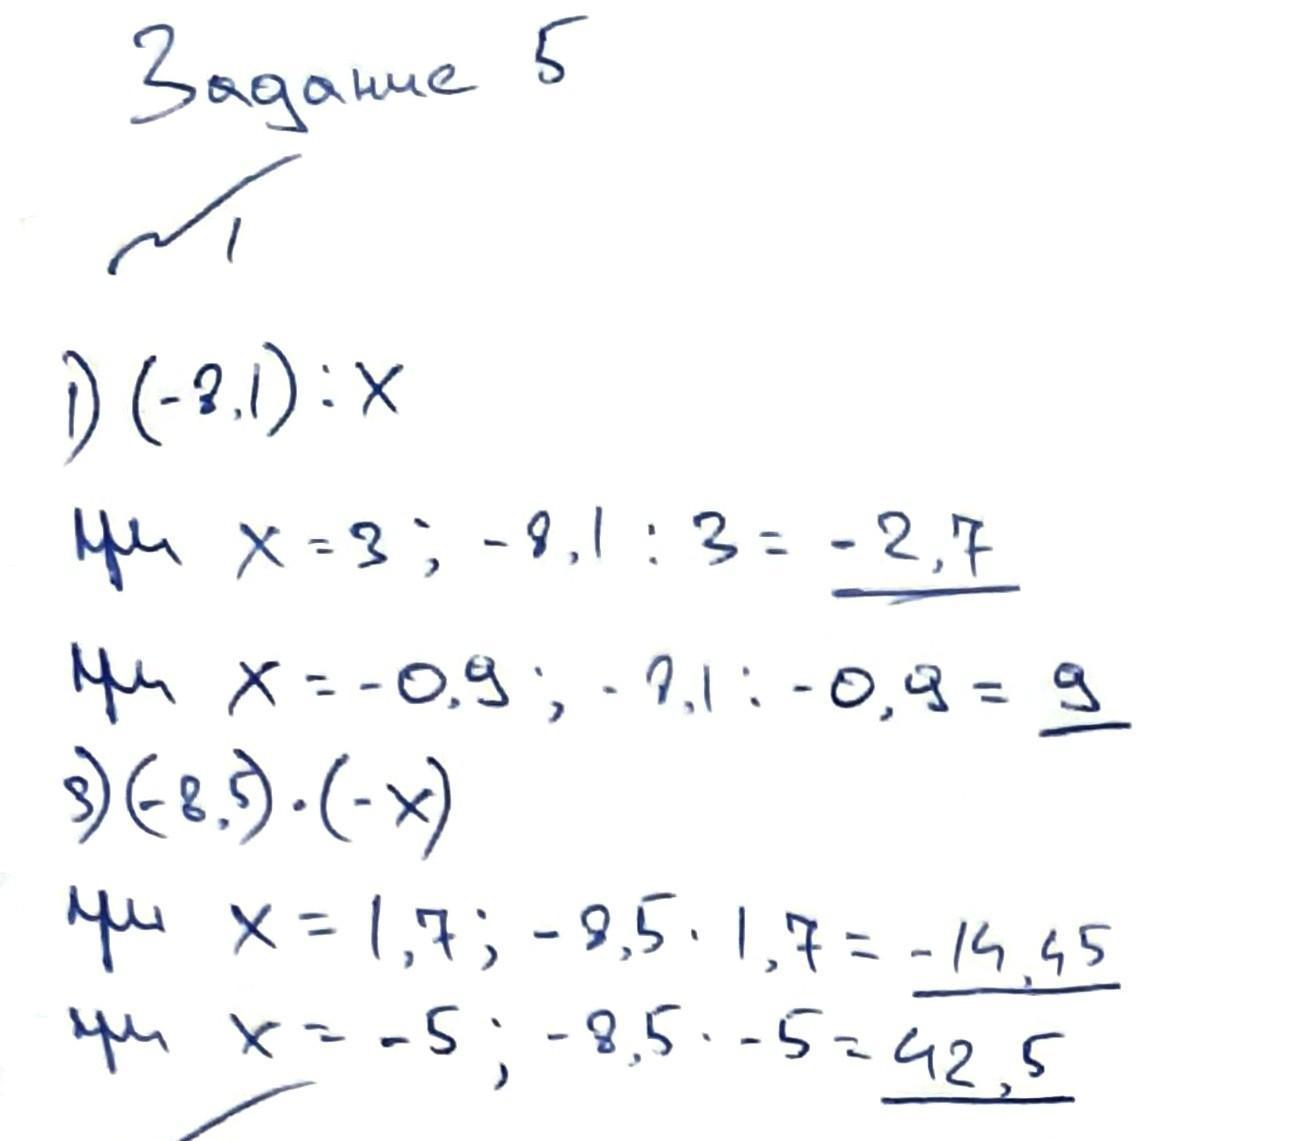 Задание 5
№1
1) (-8,1) : x
при x = 3 ; -8,1 : 3 = -2,7
при x = -0,9 ; -8,1 : -0,9 = 9
3) (-8,5) · (-x)
при x = 1,7 ; -8,5 · 1,7 = -14,45
при x = -5 ; -8,5 · -5 = 42,5